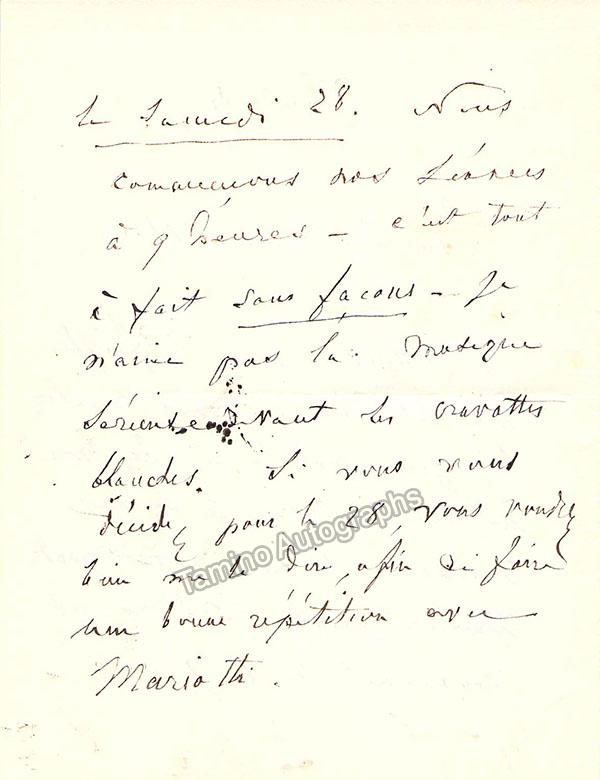 le Samedi 28. Nous
commencons nos Séances
à 9 heures – c'est tout
à fait sans façons – Je
n'aime pas la Musique
Sérieuse devant les cravattes
blanches. Si vous vous
décidez pour le 28, vous voudrez
bien me le dire, afin de faire
une bonne répétition avec
Mariotti.
Tamino Autographs